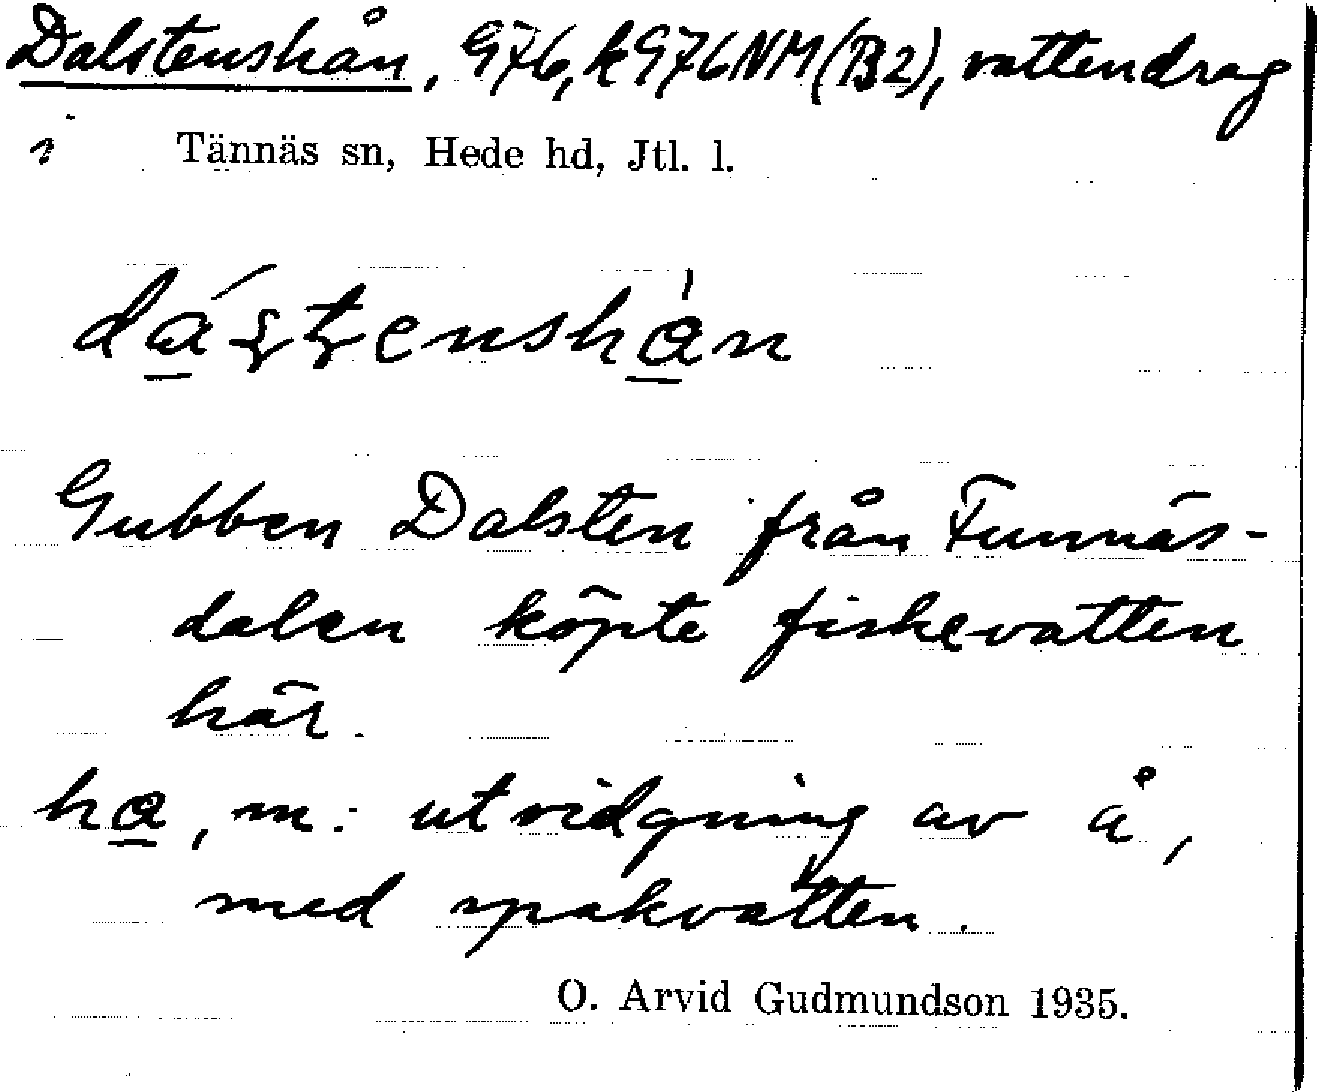 Dalstenshån, G76, k G76NM(B2), vattendrag
i Tännäs sn, Hede hd, Jtl. l.
Gubben Dalsten från Funnäs-
dalen köpte fiskevatten
här.
ha, m: utvidgning av å,
med spakvatten.
O. Arvid Gudmundson 1935.